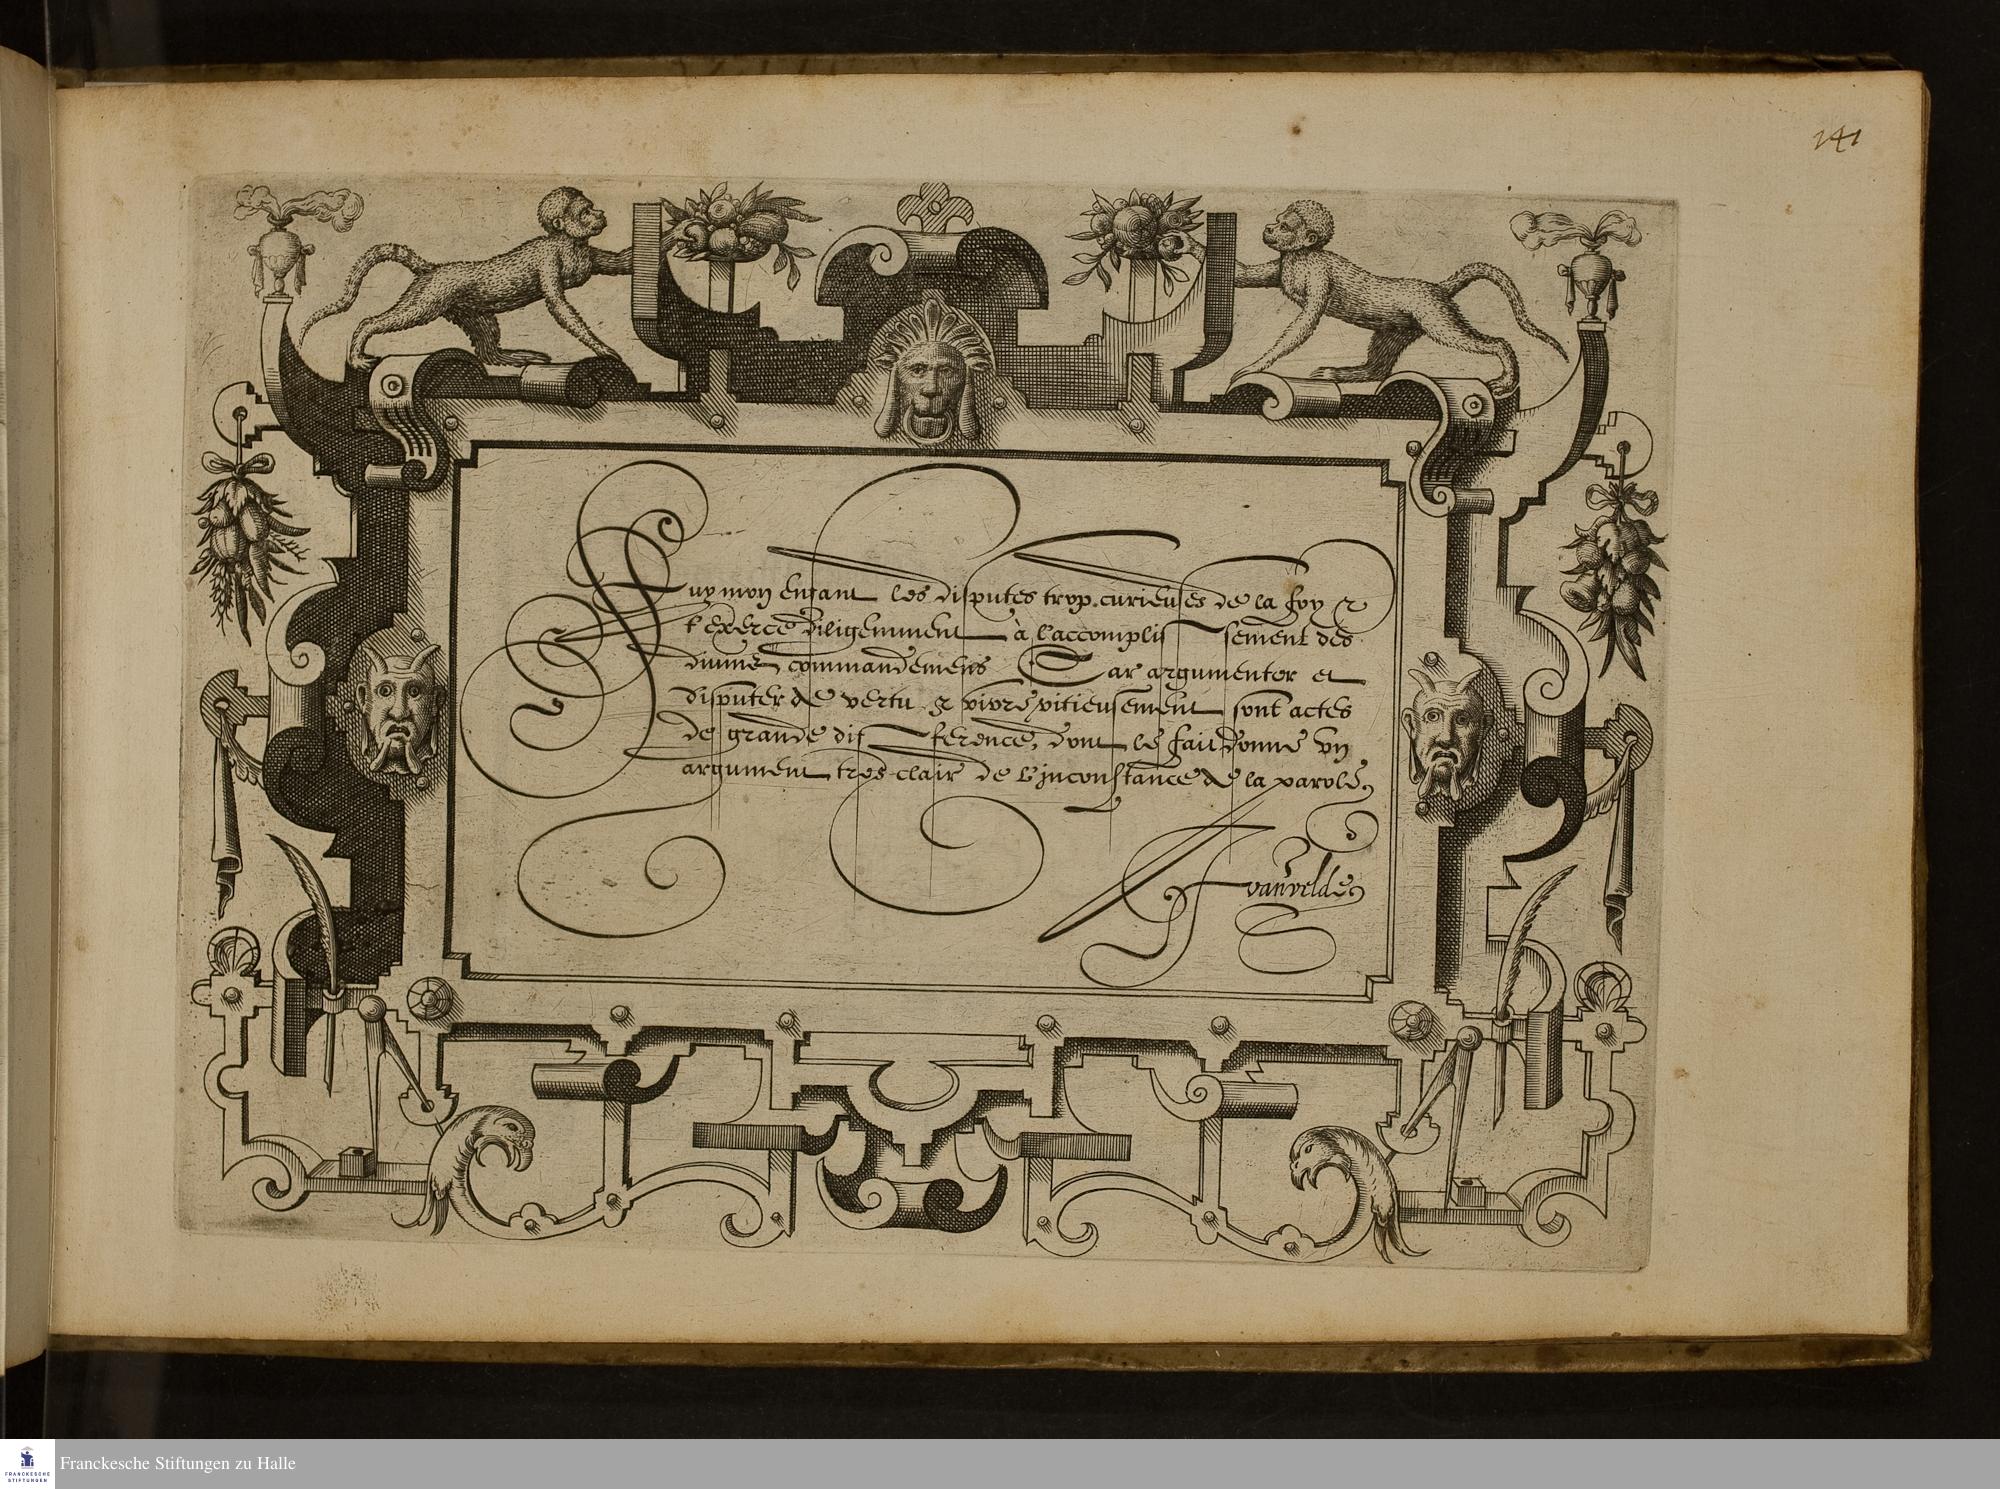 141
Fuy mon enfant les disputes trop curieuses de la foy &
t'exerce diligemment à l'accomplissement des
divins commandemens Car argumenter et
disputer de vertu & vivre vitieusement sont actes
de grande difference, dont le fait donne vn
argument tres-clair de l'inconstance de la parole,
J vanvelde,
FRANCKESCHE
STIFTUNGEN
Franckesche Stiftungen zu Halle